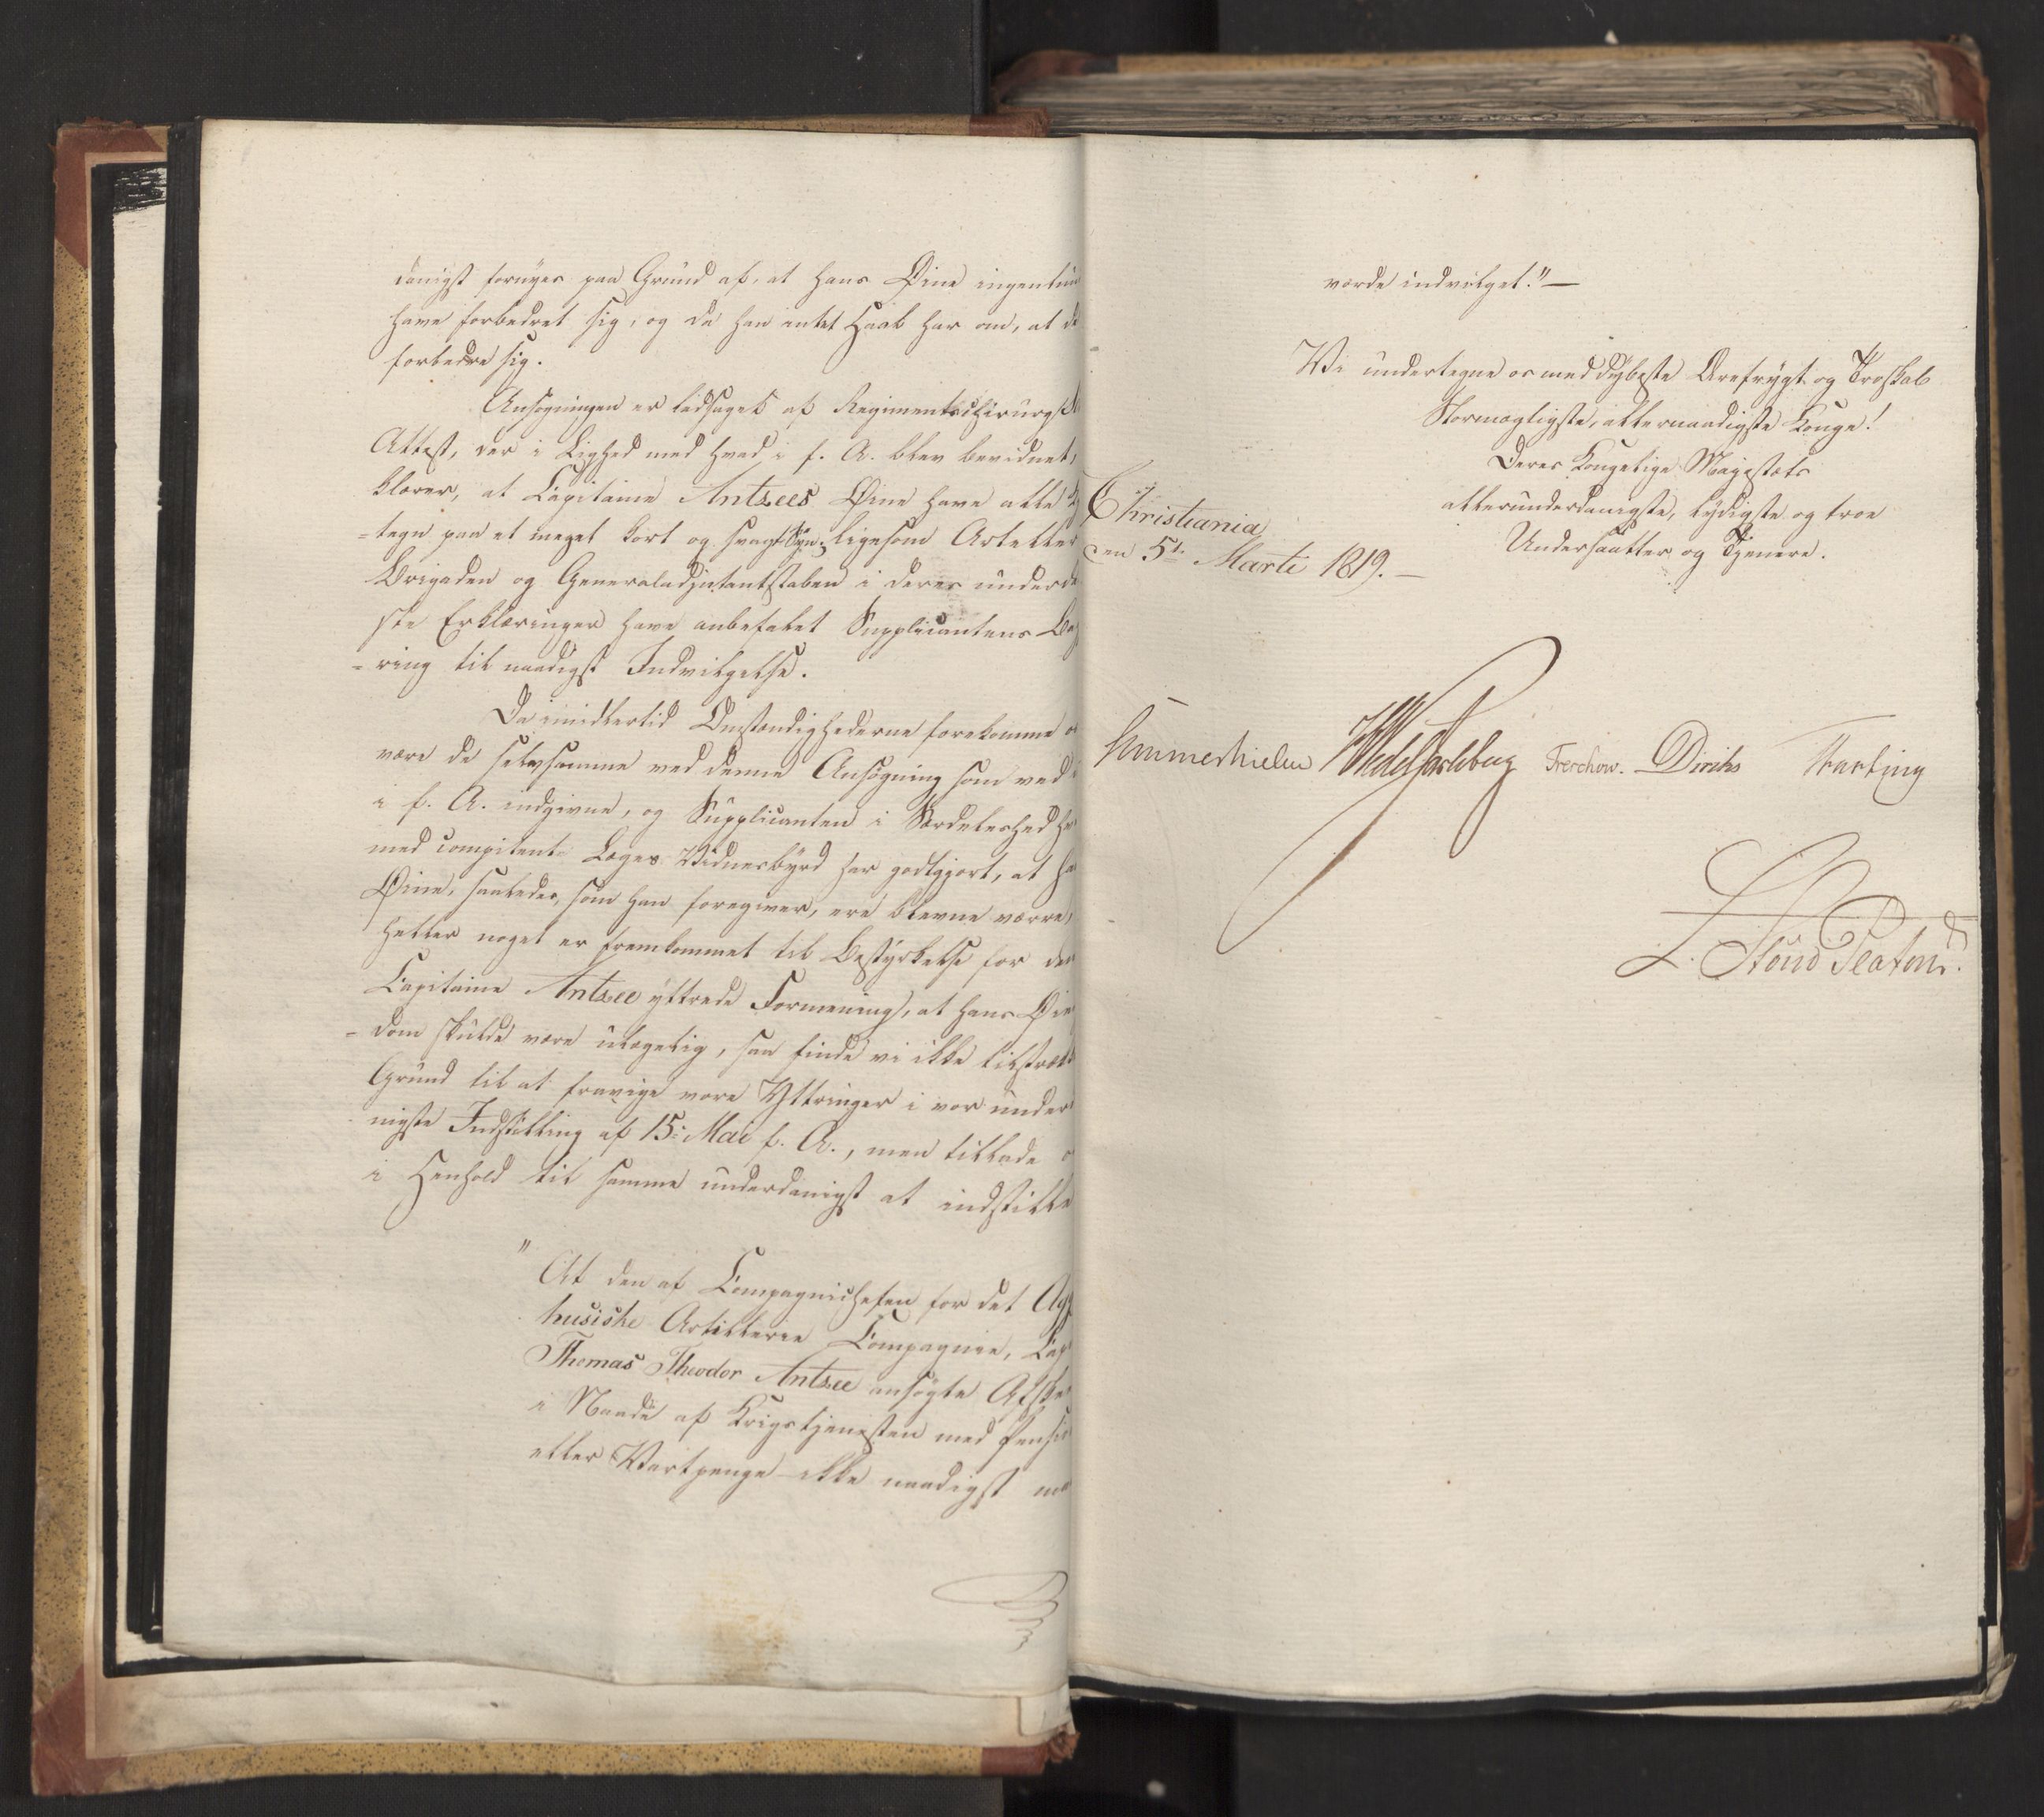 danigst fornyes paa Grund af, at hans Øine ingenlun
have forbedret sig, og da han intet Haab har om, at de
forbedre sig.
Ansøgningen er ledsaget af Regimentschirurgsk
Attest, der i Lighed med hvad i f. A. blev bevidnet,
klarer, at Capitaine Antzees Øine have alle
=tegn paa et meget kort og svagt Syn; ligesom Artiller
Brigaden og Generaladjutantstaben i deres underda
ste Erklæringer have anbefalet Supplicantens Beg
=ring til naadigst Indvilgelse.
Da imidlertid Omstændighederne forekomme o
være de selvsamme ved denne Ansøgning som ved
i f. A. indgivne, og Supplicanten i Særdeleshed
med competent Læges Vidnesbyrd har godtgjort, at ha
Øine, saaledes, som han foregiver, ere blevne værre,
heller noget er fremkommet til Bestyrkelse for den
Capitaine Antzee yttrede Formening, at hans Øie
=dom skulde være ulægelig, saa finde vi ikke tilstræk
Grund til at fravige vore Yttringer i vor under
nigste Indstilling af 15: Mai f. A., men tillade o
i Henhold til samme underdanigst at indstille
"At den af Compagniechefen for det Agg
husiske Artillerie Compagnie, Cap
Thomas Theodor Antzee ansøgte Afske
i Naade af Krigstjenesten med Pensio
eller Vartpenge ikke naadigst ma
vorde indvilget."—
Vi undertegne os med dybeste Ærefrygt og Troskab
Stormægtigste, allernaadigste Konge!
Deres Kongelige Majestæts
allerunderdanigste, lydigste og troe
Undersaatter og Tjenere.
Christiania
den 5t. Marti 1819.—
Sommerhielm HWedelJarlsberg Treschow. Diriks Fasting
L. Stoud Platou.